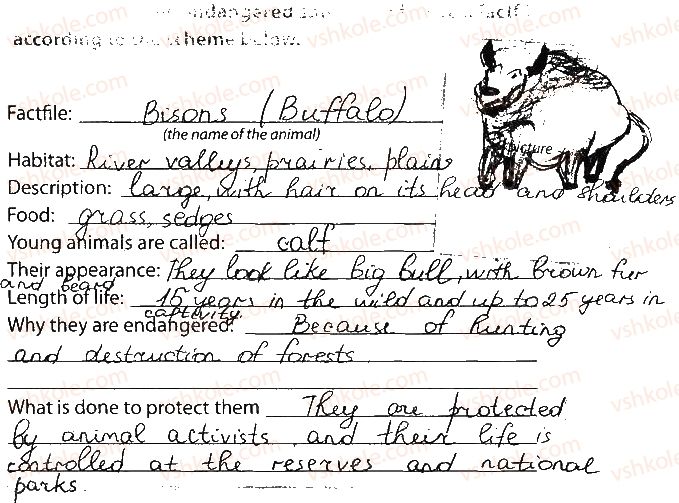 endangered
according to the scheme below.
Factfile: Bisons (Buffalo)
(the name of the animal)
picture
Habitat: River valleys, prairies, plains
Description: large, with hair on its head and shoulders
Food: grass, sedges
Young animals are called: calf
Their appearance: They look like big bull, with brown fur
and beard
Length of life: 15 years in the wild and up to 25 years in
captivity.
Why they are endangered: Because of hunting
and destruction of forests
What is done to protect them They are protected
by animal activists and their life is
controlled at the reserves and national
parks.
vshkole.com